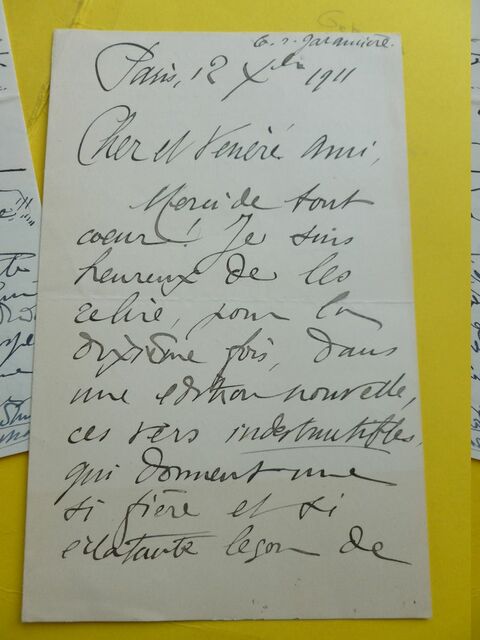 6. r. Garancière.
Paris, 12 Xbre 1911
Cher et Vénéré ami,
Merci de tout
coeur! Je suis
heureux de les
relire, pour la
dixième fois, dans
une edition nouvelle,
ces vers indestructibles,
qui donnent une
si fière et si
éclatante leçon de